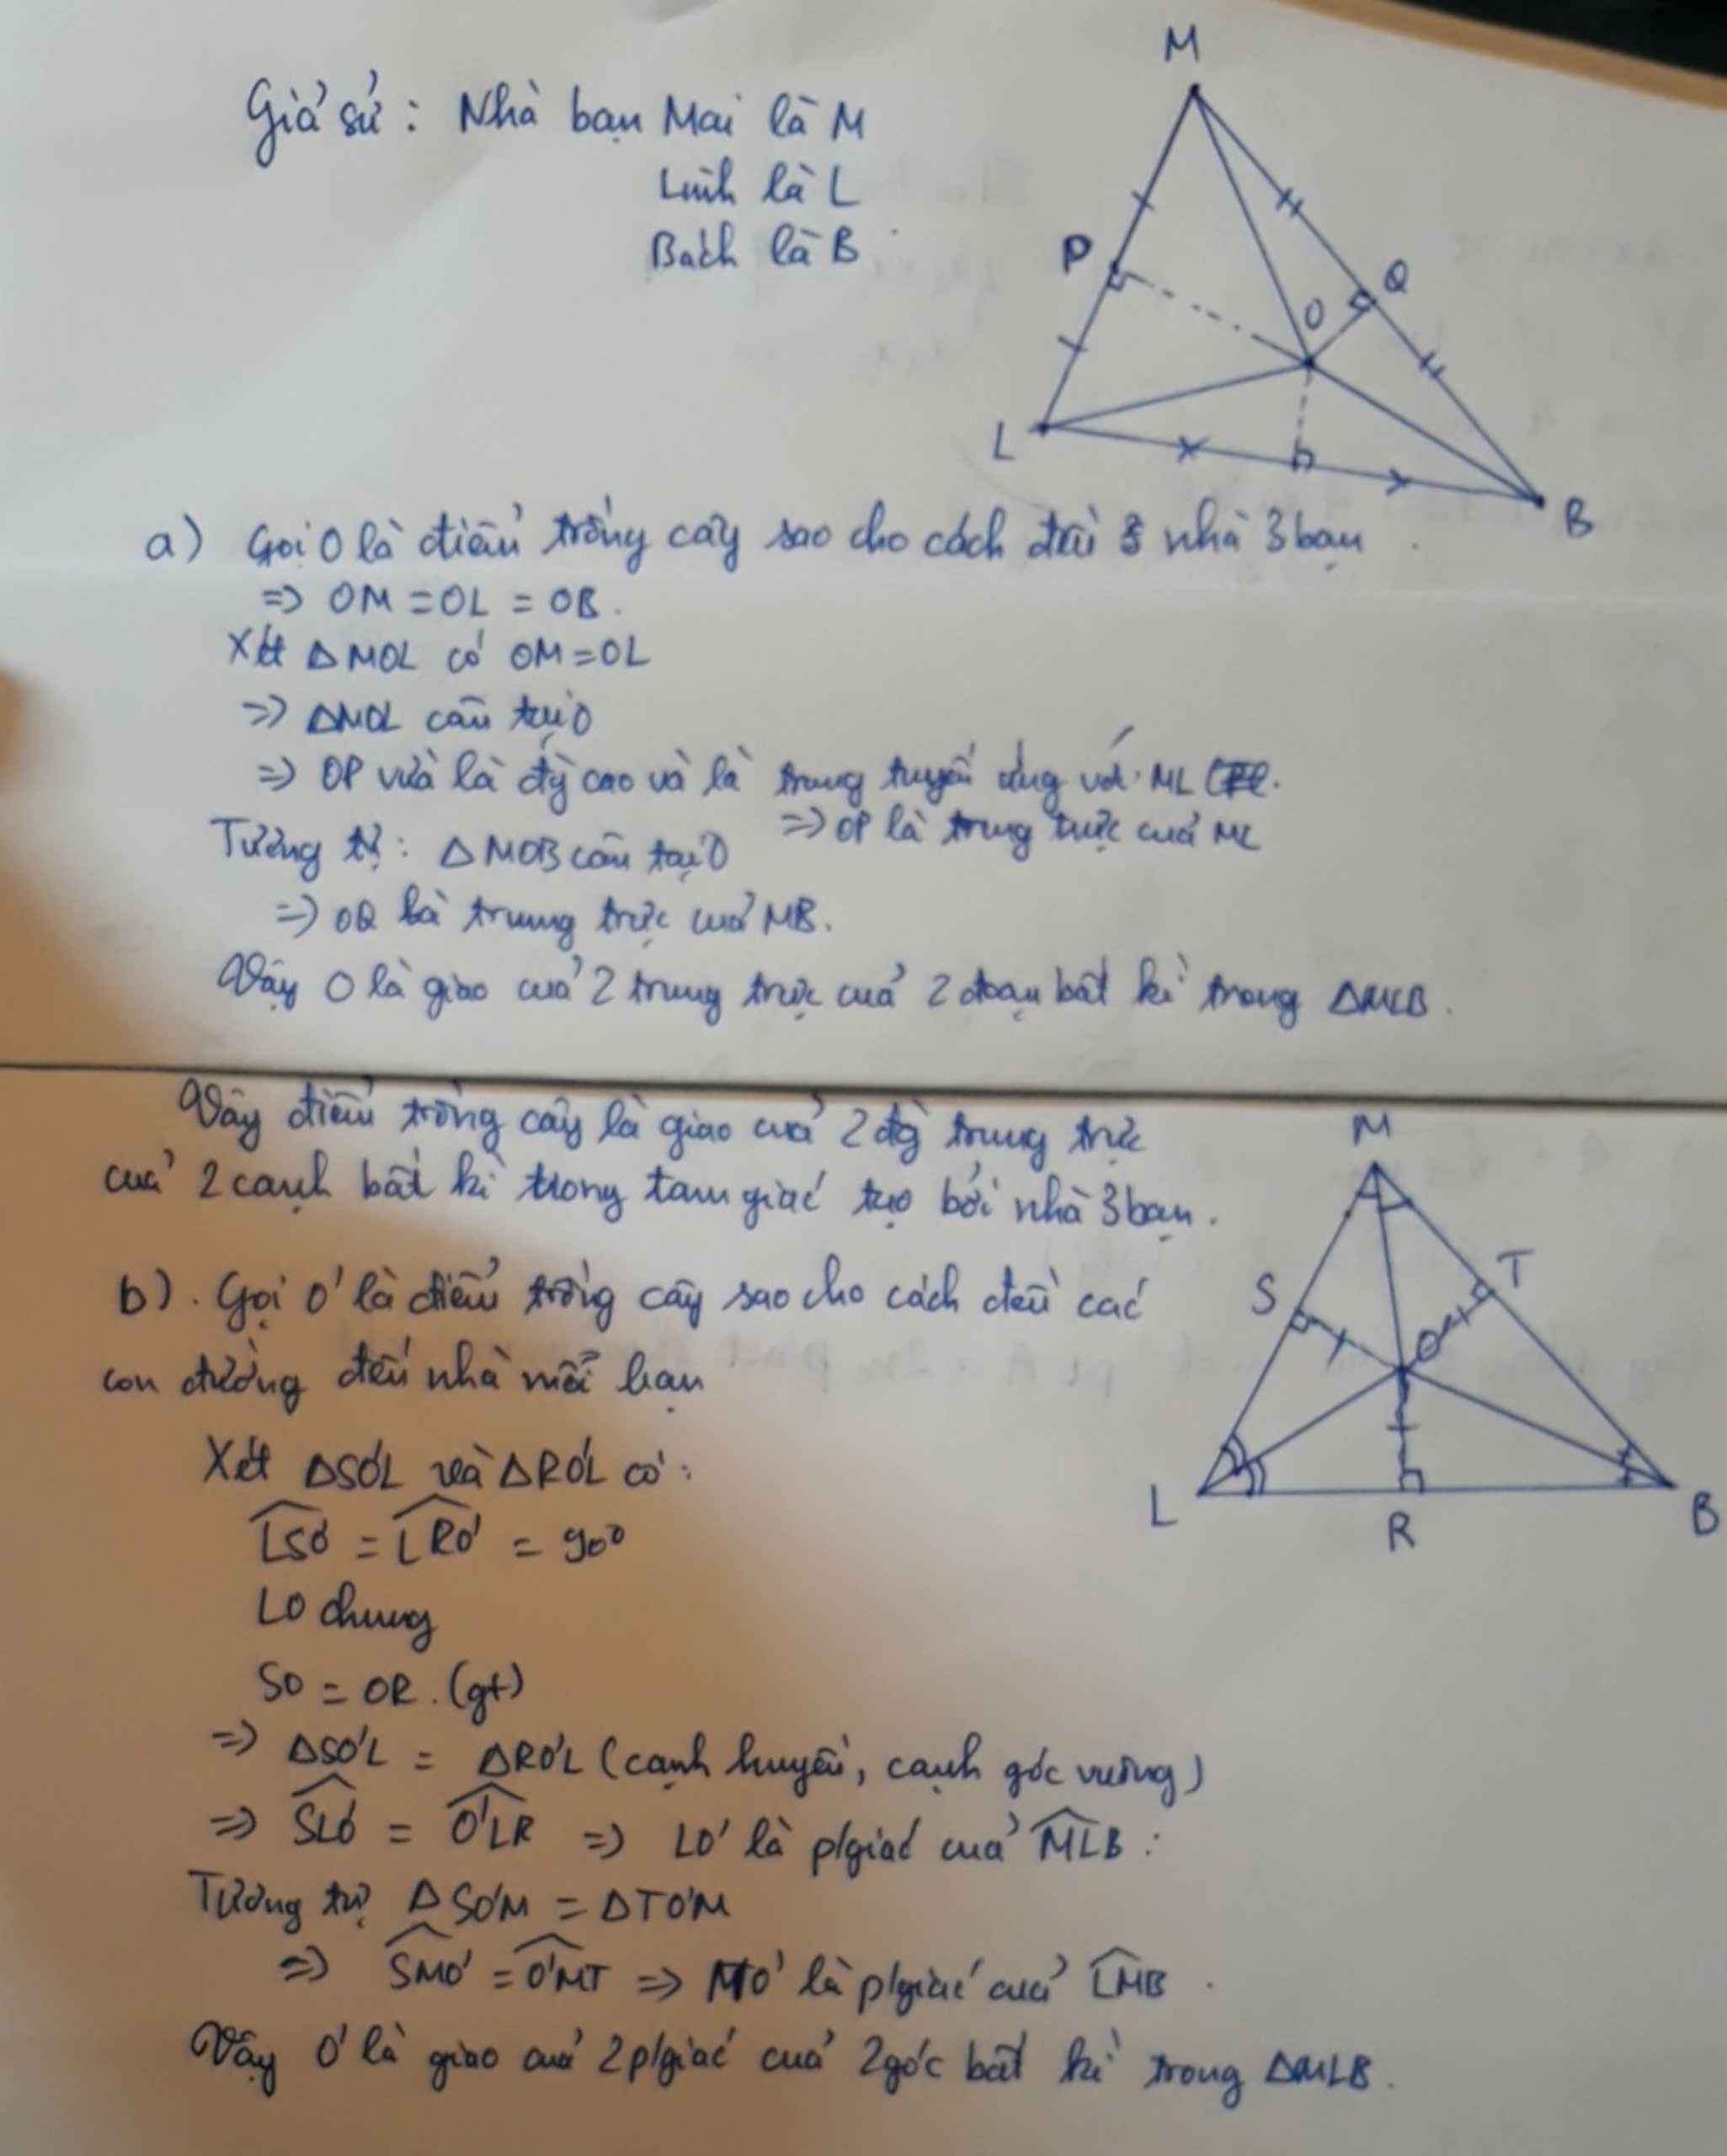 Giả sử : Nhà bạn Mai là M
Linh là L
Bách là B
M
P
Q
O
L
B
a) Gọi O là điểm trồng cây sao cho cách đều nhà 3 bạn.
=> OM = OL = OB.
Xét ΔMOL có OM = OL
=> ΔMOL cân tại O
=> OP vừa là đg cao và là trung tuyến ứng với ML
=> OP là trung trực của ML
Tương tự : ΔMOB cân tại O
=> OQ là trung trực của MB.
Vậy O là giao của 2 trung trực của 2 đoạn bất kì trong ΔMLB.
Vậy điểm trồng cây là giao của 2 đg trung trực
của 2 cạnh bất kì trong tam giác tạo bởi nhà 3 bạn.
M
S
T
O'
L
R
B
b). Gọi O' là điểm trồng cây sao cho cách đều các
con đường đến nhà mỗi bạn
Xét ΔSO'L và ΔRO'L có :
\widehat{LSO'} = \widehat{LRO'} = 90°
LO chung
SO = OR. (gt)
=> ΔSO'L = ΔRO'L (cạnh huyền, cạnh góc vuông)
=> \widehat{SLO'} = \widehat{O'LR} => LO' là p/giác của \widehat{MLB} :
Tương tự ΔSO'M = ΔTO'M
=> \widehat{SMO'} = \widehat{O'MT} => MO' là p/giác của \widehat{LMB} .
Vậy O' là giao của 2 p/giác của 2 góc bất kì trong ΔMLB.